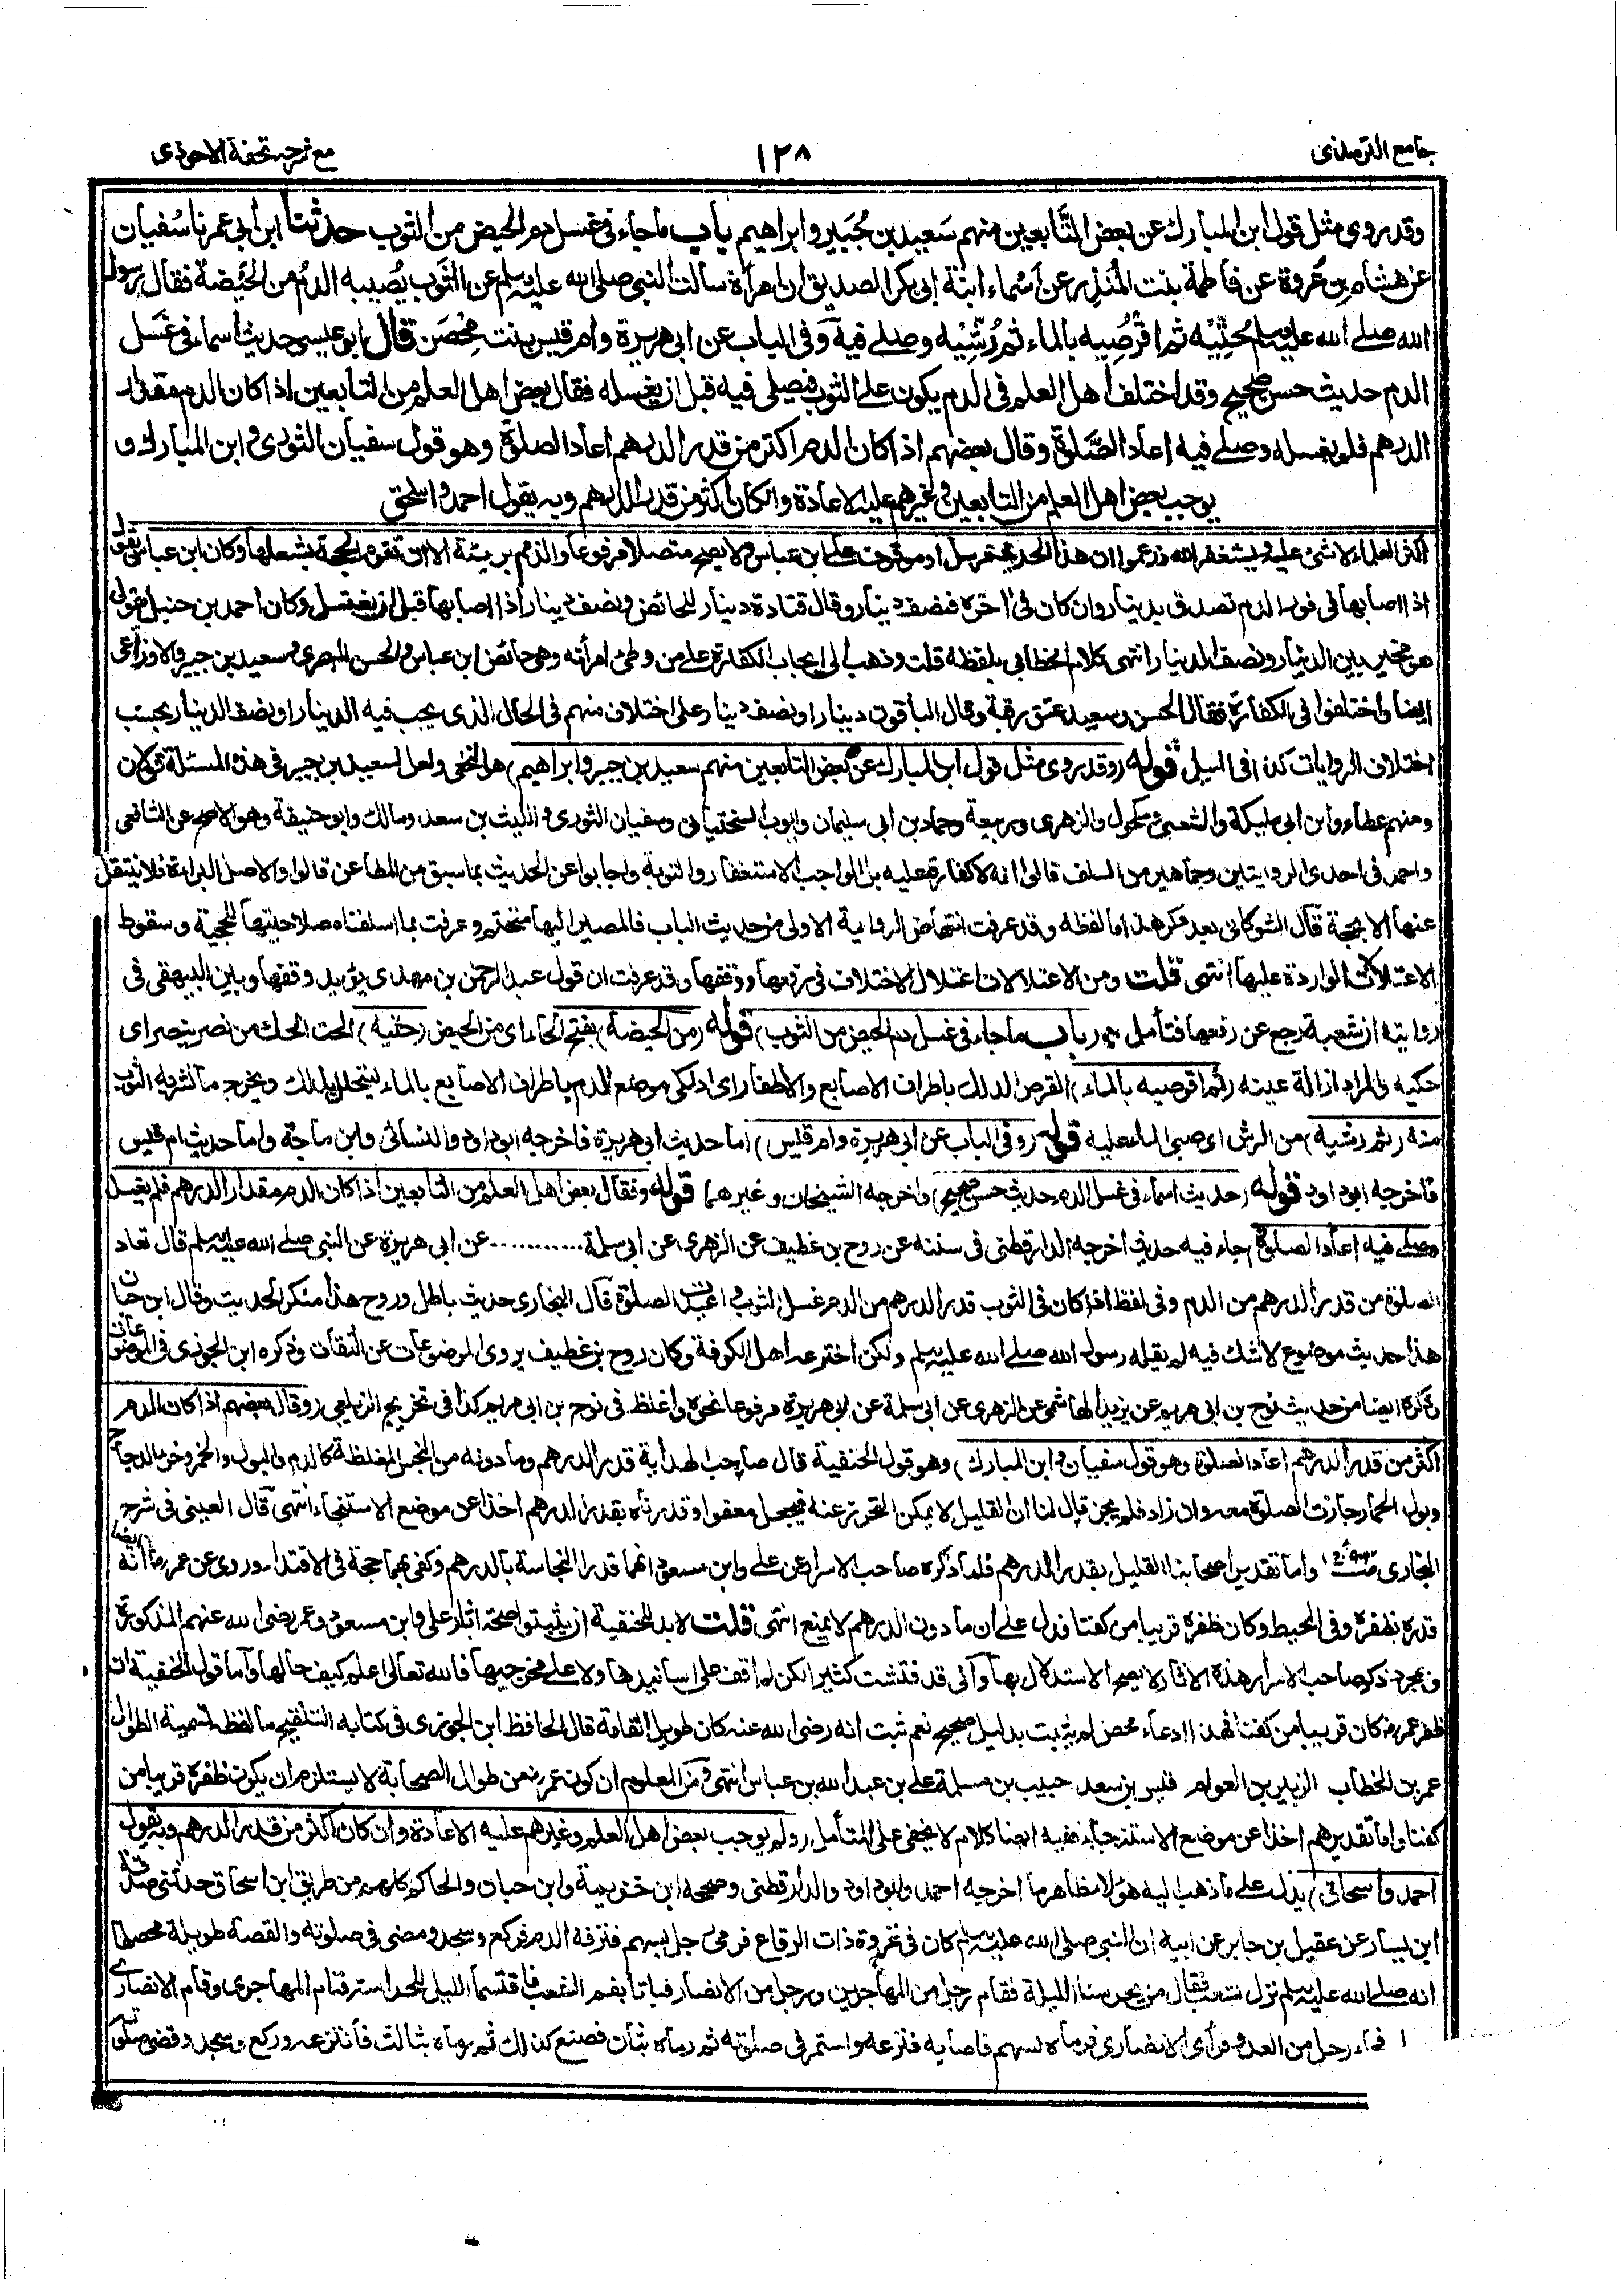 جامع الترمذى
١٢٨
مع شرحه تحفة الاحوذى
وقد روى مثل قول ابن المبارك عن بعض التَّابعين منهم سَعيد بن جُبَيرٍ وابراهيم باب ما جاء فى غسل دم الحيض من الثوب حدثنا ابن ابى عمر نا سُفيان
عن هشام بن عُروة عن فاطمة بنت المُنذِر عن اَسْماء ابنة ابى بكر الصديق ان امرأة سألت النبى صلى الله عليه وسلم عن الثوب يُصيبه الدمُ من الحَيضة فقال رسول
الله صلے الله عليه وسلم حُتّيْه ثم اقْرُصِيه بالماء ثم رُشّيْه وصلے فيه وفى الباب عن ابى هريرة وام قيس بنت مِحْصَن قال ابو عيسى حديث اسماء فى غَسل
الدم حديث حسن صحيح وقد اختلف اهل العلم فى الدم يكون على الثوب فيصلى فيه قبل ان يغسله فقال بعض اهل العلم من التابعين اذا كان الدم مقدار
الدرهم فلم يغسله وصلے فيه اعاد الصَّلوة وقال بعضهم اذا كان الدم اكثر من قدر الدرهم اعاد الصلوة وهو قول سفيان الثورى وابن المبارك و
يوجب بعض اهل العلم من التابعين وغيرهم عليه الاعادة وان كان اكثر من قدر الدرهم وبه يقول احمد واسحٰق
اكثر العلماء لا شئ عليه ويستغفر الله وزعموا ان هذا الحديث مرسل او موقوف على ابن عباس ولا يصح متصلا مرفوعا والذمم بريئة الا ان تقوم الحجة بشغلها وكان ابن عباس يقول
اذا اصابها فى فور الدم تصدق بدينار وان كان فى اخره فنصف دينار وقال قتادة دينار للحائض ونصف دينار اذا اصابها قبل ان يغتسل وكان احمد بن حنبل يقول
هو مخير بين الدينار ونصف الدينار انتهى كلام الخطابى بلفظه قلت وذهب الى ايجاب الكفارة على من وطئ امرأته وهى حائض ابن عباس والحسن البصرى وسعيد بن جبير والاوزاعى
ايضا واختلفوا فى الكفارة فقال الحسن وسعيد عتق رقبة وقال الباقون دينار او نصف دينار على اختلاف منهم فى الحال الذى يجب فيه الدينار او نصف الدينار بحسب
اختلاف الروايات كذا فى النيل قوله (وقد روى مثل قول ابن المبارك عن بعض التابعين منهم سعيد بن جبير وابراهيم) هو النخعى ولعل لسعيد بن جبير فى هذه المسئلة قولان
ومنهم عطاء وابن ابى مليكة والشعبى ومكحول والزهرى وربيعة وحماد بن ابى سليمان وايوب السختيانى وسفيان الثورى والليث بن سعد ومالك وابو حنيفة وهو الاصح عن الشافعى
واحمد فى احدى الروايتين وجماهير من السلف قالوا انه لا كفارة عليه بل الواجب الاستغفار والتوبة واجابوا عن الحديث بما سبق من المطاعن قالوا والاصل البراءة فلا ينتقل
عنها الا بحجة قال الشوكانى بعد ذكر هذا ما لفظه وقد عرفت انتهاض الرواية الاولى من حديث الباب فالمصير اليها متحتم وعرفت بما اسلفناه صلاحيتها للحجية وسقوط
الاعتلالات الواردة عليها انتهى قلت ومن الاعتلالات اعتلال الاختلاف فى رفعها ووقفها وقد عرفت ان قول عبد الرحمٰن بن مهدى يؤيد وقفها وبين البيهقى فى
روايته ان شعبة رجع عن رفعها فتأمل (باب ما جاء فى غسل دم الحيض من الثوب) قوله (من الحيضة) بفتح الحاء اى من الحيض (حتيه) الحت الحك من نصر ينصر اى
حكيه والمراد ازالة عينه (ثم اقرصيه بالماء) القرص الدلك باطراف الاصابع والاظفار اى ادلكى موضع الدم باطراف الاصابع بالماء ليتحلل بذلك ويخرج ما تشربه الثوب
منه (ثم رشيه) من الرش اى صبى الماء عليه قوله (وفى الباب عن ابى هريرة وام قيس) اما حديث ابى هريرة فاخرجه ابو داود والنسائى وابن ماجة واما حديث ام قيس
فاخرجه ابو داود قوله (حديث اسماء فى غسل الدم حديث حسن صحيح) واخرجه الشيخان وغيرهما قوله (فقال بعض اهل العلم من التابعين اذا كان الدم مقدار الدرهم فلم يغسل
وصلے فيه اعاد الصلوة) جاء فيه حديث اخرجه الدارقطنى فى سننه عن روح بن غطيف عن الزهرى عن ابى سلمة ............ عن ابى هريرة عن النبى صلے الله عليه وسلم قال تعاد
الصلوة من قدر الدرهم من الدم وفى لفظ اذا كان فى الثوب قدر الدرهم من الدم غسل الثوب واعيدت الصلوة قال البخارى حديث باطل وروح هذا منكر الحديث وقال ابن حبان
هذا حديث موضوع لا شك فيه لم يقله رسول الله صلے الله عليه وسلم ولكن اخترعه اهل الكوفة وكان روح بن غطيف يروى الموضوعات عن الثقات وذكره ابن الجوزى فى الموضوعات
وذكره ايضا من حديث نوح بن ابى مريم عن يزيد الهاشمى عن الزهرى عن ابى سلمة عن ابى هريرة مرفوعا نحوه واغلظ فى نوح بن ابى مريم كذا فى تخريج الزيلعى (وقال بعضهم اذا كان الدم
اكثر من قدر الدرهم اعاد الصلوة وهو قول سفيان وابن المبارك) وهو قول الحنفية قال صاحب الهداية قدر الدرهم وما دونه من النجس المغلظة كالدم والبول والخمر وخرء الدجاج
وبول الحمار جازت الصلوة معه وان زاد فلم يجز قال لنا ان القليل لا يمكن التحرز عنه فيجعل معفوا وقدرناه بقدر الدرهم اخذا عن موضع الاستنجاء انتهى قال العينى فى شرح
البخارى واما تقدير اصحابنا القليل بقدر الدرهم فلما ذكره صاحب الاسرار عن على وابن مسعود انهما قدرا النجاسة بالدرهم وكفى بهما حجة فى الاقتداء وروى عن عمر ايضا انه
قدره بظفره وفى المحيط وكان ظفره قريبا من كفنا فدل على ان ما دون الدرهم لا يمنع انتهى قلت لا بد للحنفية ان يثبتوا صحة اثار على وابن مسعود وعمر رضى الله عنهم المذكورة
وبمجرد ذكر صاحب الاسرار هذه الاثار لا يصح الاستدلال بها وانى قد فتشت كثيرا لكن لم اقف على اسانيدها ولا على مخرجيها فالله تعالى اعلم كيف حالها واما قول الحنفية ان
ظفر عمر كان قريبا من كفنا فهذا ادعاء محض لم يثبت بدليل صحيح نعم ثبت انه رضى الله عنه كان طويل القامة قال الحافظ ابن الجوزى فى كتابه التلقيح ما لفظه تسمية الطوال
عمر بن الخطاب الزبير بن العوام قيس بن سعد حبيب بن مسلمة على بن عبد الله بن عباس انتهى ومن المعلوم ان كون عمر من طوال الصحابة لا يستلزم ان يكون ظفره قريبا من
كفنا واما تقديرهم اخذا عن موضع الاستنجاء ففيه ايضا كلام لا يخفى على المتأمل (ولم يوجب بعض اهل العلم وغيرهم عليه الاعادة وان كان اكثر من قدر الدرهم وبه يقول
احمد واسحاق) يدل على ما ذهب اليه هؤلاء ظاهر ما اخرجه احمد وابو داود والدارقطنى وصححه ابن خزيمة وابن حبان والحاكم كلهم من طريق ابن اسحاق حدثنى صدقة
ابن يسار عن عقيل بن جابر عن ابيه ان النبى صلى الله عليه وسلم كان فى غزوة ذات الرقاع فرمى رجل بسهم فنزفه الدم فركع وسجد ومضى فى صلوته والقصة طويلة محصلها
انه صلے الله عليه وسلم نزل بشعب فقال من يحرسنا الليلة فقام رجل من المهاجرين ورجل من الانصار فباتا بفم الشعب فاقتسما الليل للحراسة فنام المهاجرى وقام الانصارى
فجاء رجل من العدو فرأى الانصارى فرماه بسهم فاصابه فنزعه واستمر فى صلوته ثم رماه بثان فصنع كذلك ثم رماه بثالث فانتزعه وركع وسجد وقضى صلوته